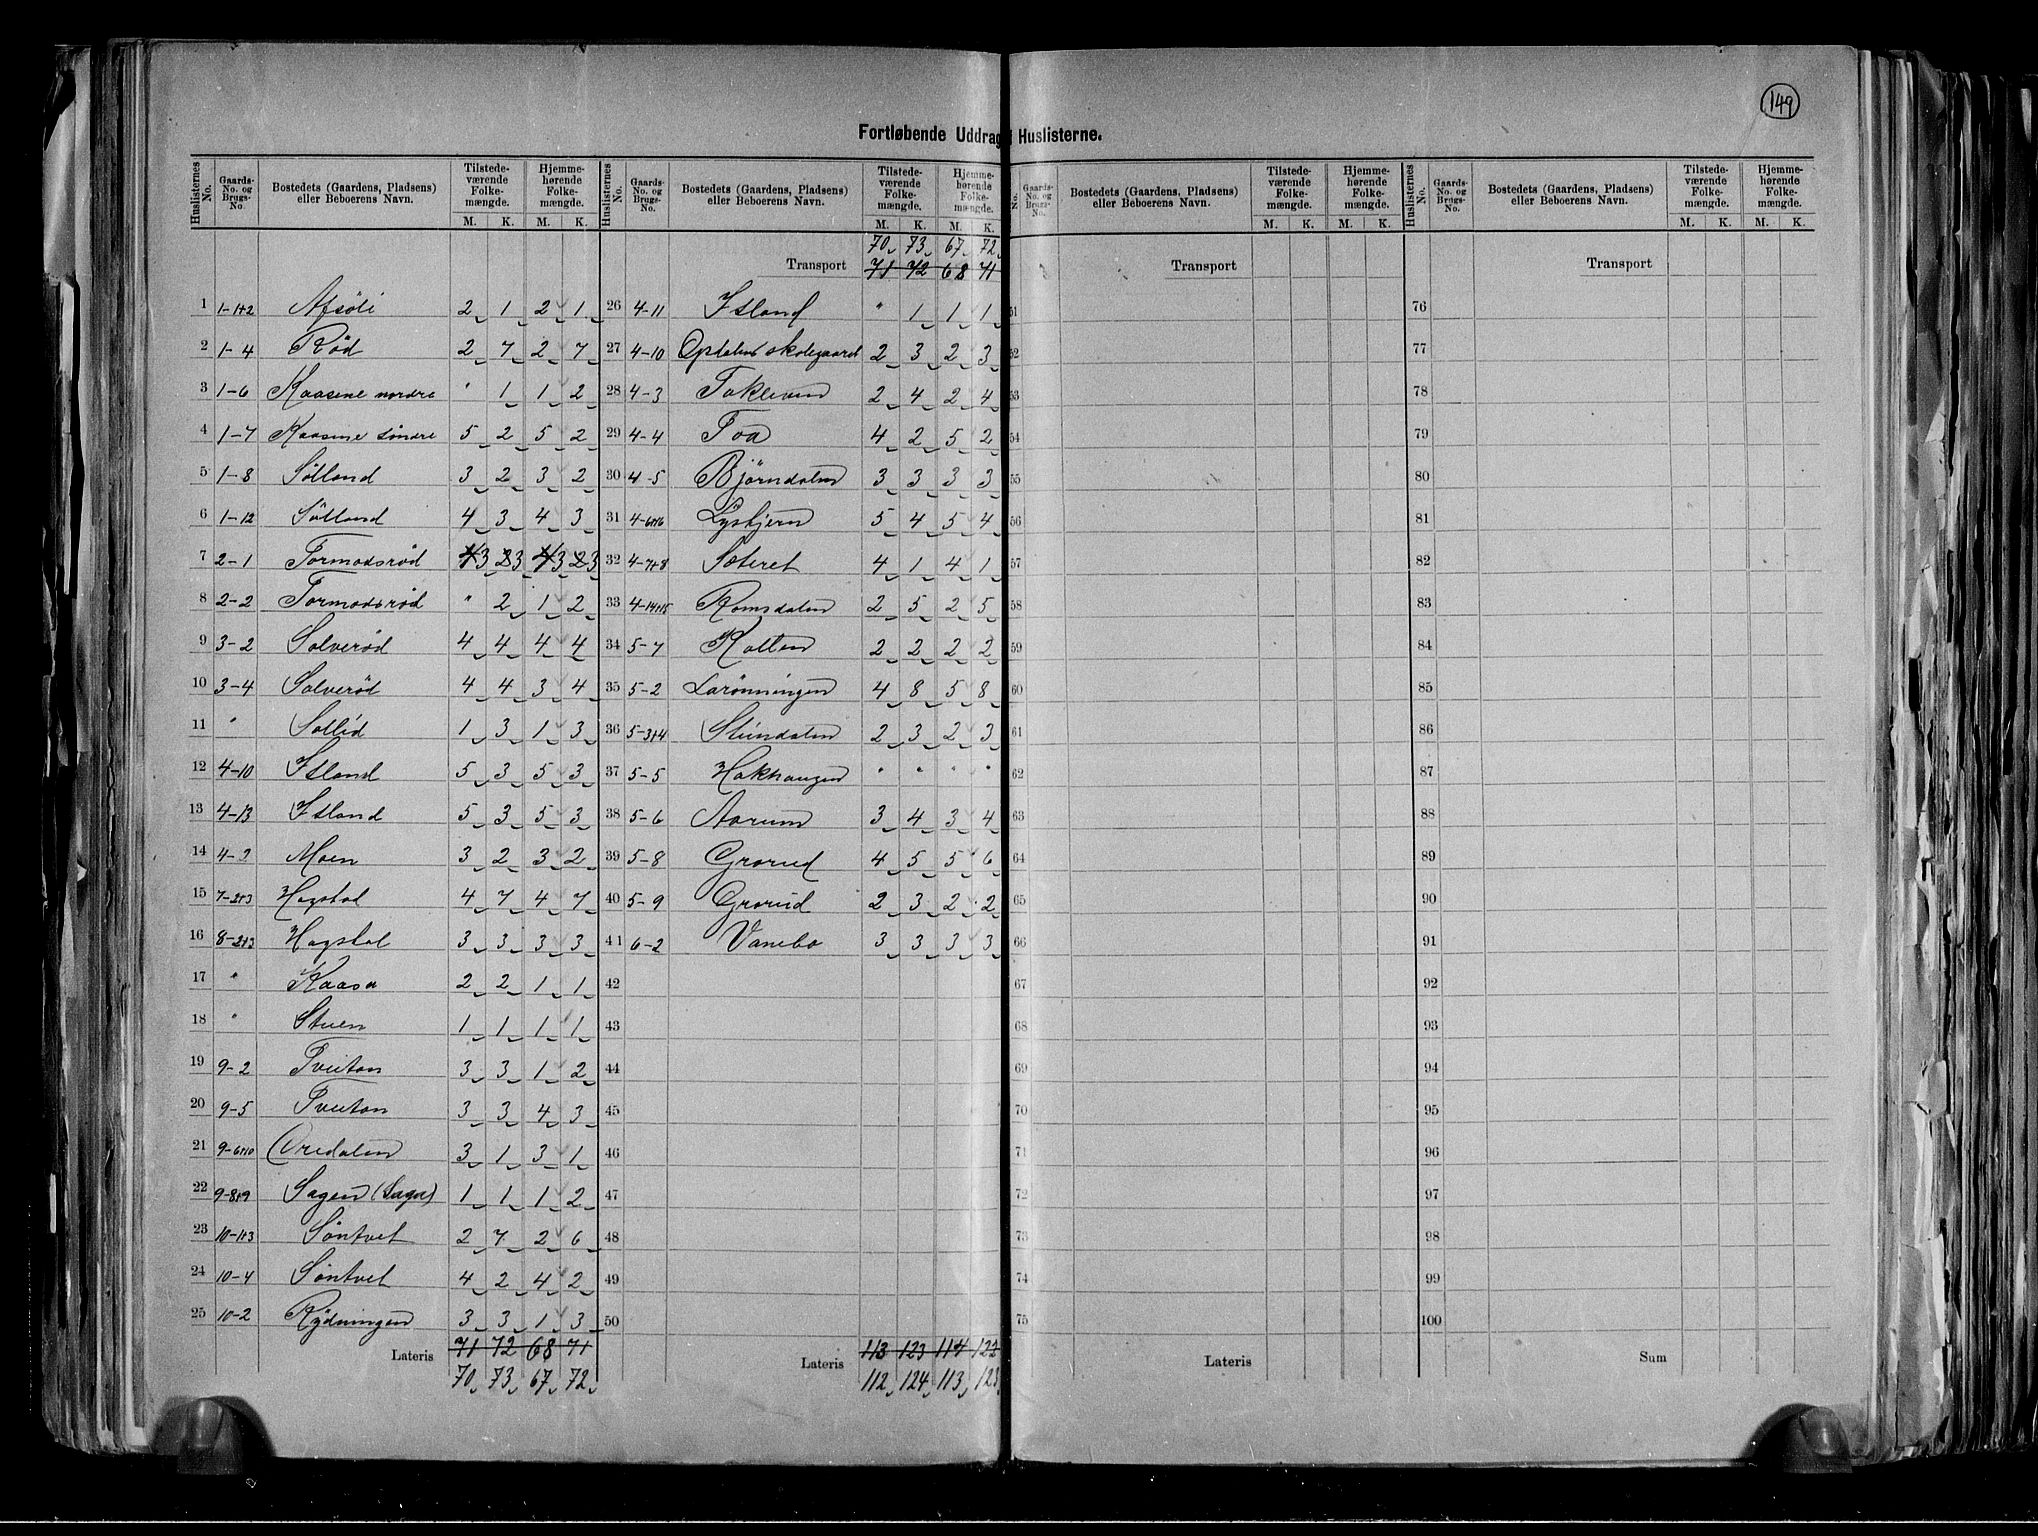 149
Fortløbende Uddrag Huslisterne.
Huslisternes No. | Gaards-No. og Brugs-No. | Bostedets (Gaardens, Pladsens) eller Beboerens Navn. | Tilstede-værende Folke-mængde. M. K. | Hjemme-hørende Folke-mængde. M. K.
1 1-1+2 Afsöli 2 1 2 1
2 1-4 Röd 2 7 2 7
3 1-6 Kaasene nordre " 1 1 2
4 1-7 Kaasene söndre 5 2 5 2
5 1-8 Sölland 3 2 3 2
6 1-12 Sölland 4 3 4 3
7 2-1 Tormodsröd 3 3 3 3
8 2-2 Tormodsröd " 2 1 2
9 3-2 Solveröd 4 4 4 4
10 3-4 Solveröd 4 4 3 4
11 " Sollid 1 3 1 3
12 4-10 Island 5 3 5 3
13 4-13 Island 5 3 5 3
14 4-2 Moen 3 2 3 2
15 7-2+3 Hogstad 4 7 4 7
16 8-2+3 Hogstad 3 3 3 3
17 " Kaasa 2 2 1 1
18 " Stuen 1 1 1 1
19 9-2 Tveitan 3 3 1 2
20 9-5 Tveitan 3 3 4 3
21 9-6+10 Oredalen 3 1 3 1
22 9-8+9 Sagen (Saga) 1 1 1 2
23 10-1+3 Söntvet 2 7 2 6
24 10-4 Söntvet 4 2 4 2
25 10-2 Rydningen 3 3 1 3
71 72 68 71
Lateris
70 73 67 72
Huslisternes No. | Gaards-No. og Brugs-No. | Bostedets (Gaardens, Pladsens) eller Beboerens Navn. | Tilstede-værende Folke-mængde. M. K. | Hjemme-hørende Folke-mængde. M. K.
70 73 67 72
Transport 71 72 68 71
26 4-11 Island " 1 1 1
27 4-10 Opdalens skolegaard 2 3 2 3
28 4-3 Takleven 2 4 2 4
29 4-4 Toa 4 2 5 2
30 4-5 Björndalen 3 3 3 3
31 4-6+16 Lystjern 5 4 5 4
32 4-7+8 Sæteret 4 1 4 1
33 4-14+15 Romsdalen 2 5 2 5
34 5-7 Kolten 2 2 2 2
35 5-2 Larönningen 4 8 5 8
36 5-3+4 Stendalen 2 3 2 3
37 5-5 Hakhaugen " " " "
38 5-6 Aarum 3 4 3 4
39 5-8 Grorud 4 5 5 6
40 5-9 Grorud 2 3 2 2
41 6-2 Vanebo 3 3 3 3
42
43
44
45
46
47
48
49
50
113 123 114 122
Lateris
112 124 113 123
No. | Gaards-No. og Brugs-No. | Bostedets (Gaardens, Pladsens) eller Beboerens Navn. | Tilstede-værende Folke-mængde. M. K. | Hjemme-hørende Folke-mængde. M. K.
Transport
51
52
53
54
55
56
57
58
59
60
61
62
63
64
65
66
67
68
69
70
71
72
73
74
75
Lateris
Huslisternes No. | Gaards-No. og Brugs-No. | Bostedets (Gaardens, Pladsens) eller Beboerens Navn. | Tilstede-værende Folke-mængde. M. K. | Hjemme-hørende Folke-mængde. M. K.
Transport
76
77
78
79
80
81
82
83
84
85
86
87
88
89
90
91
92
93
94
95
96
97
98
99
100
Sum